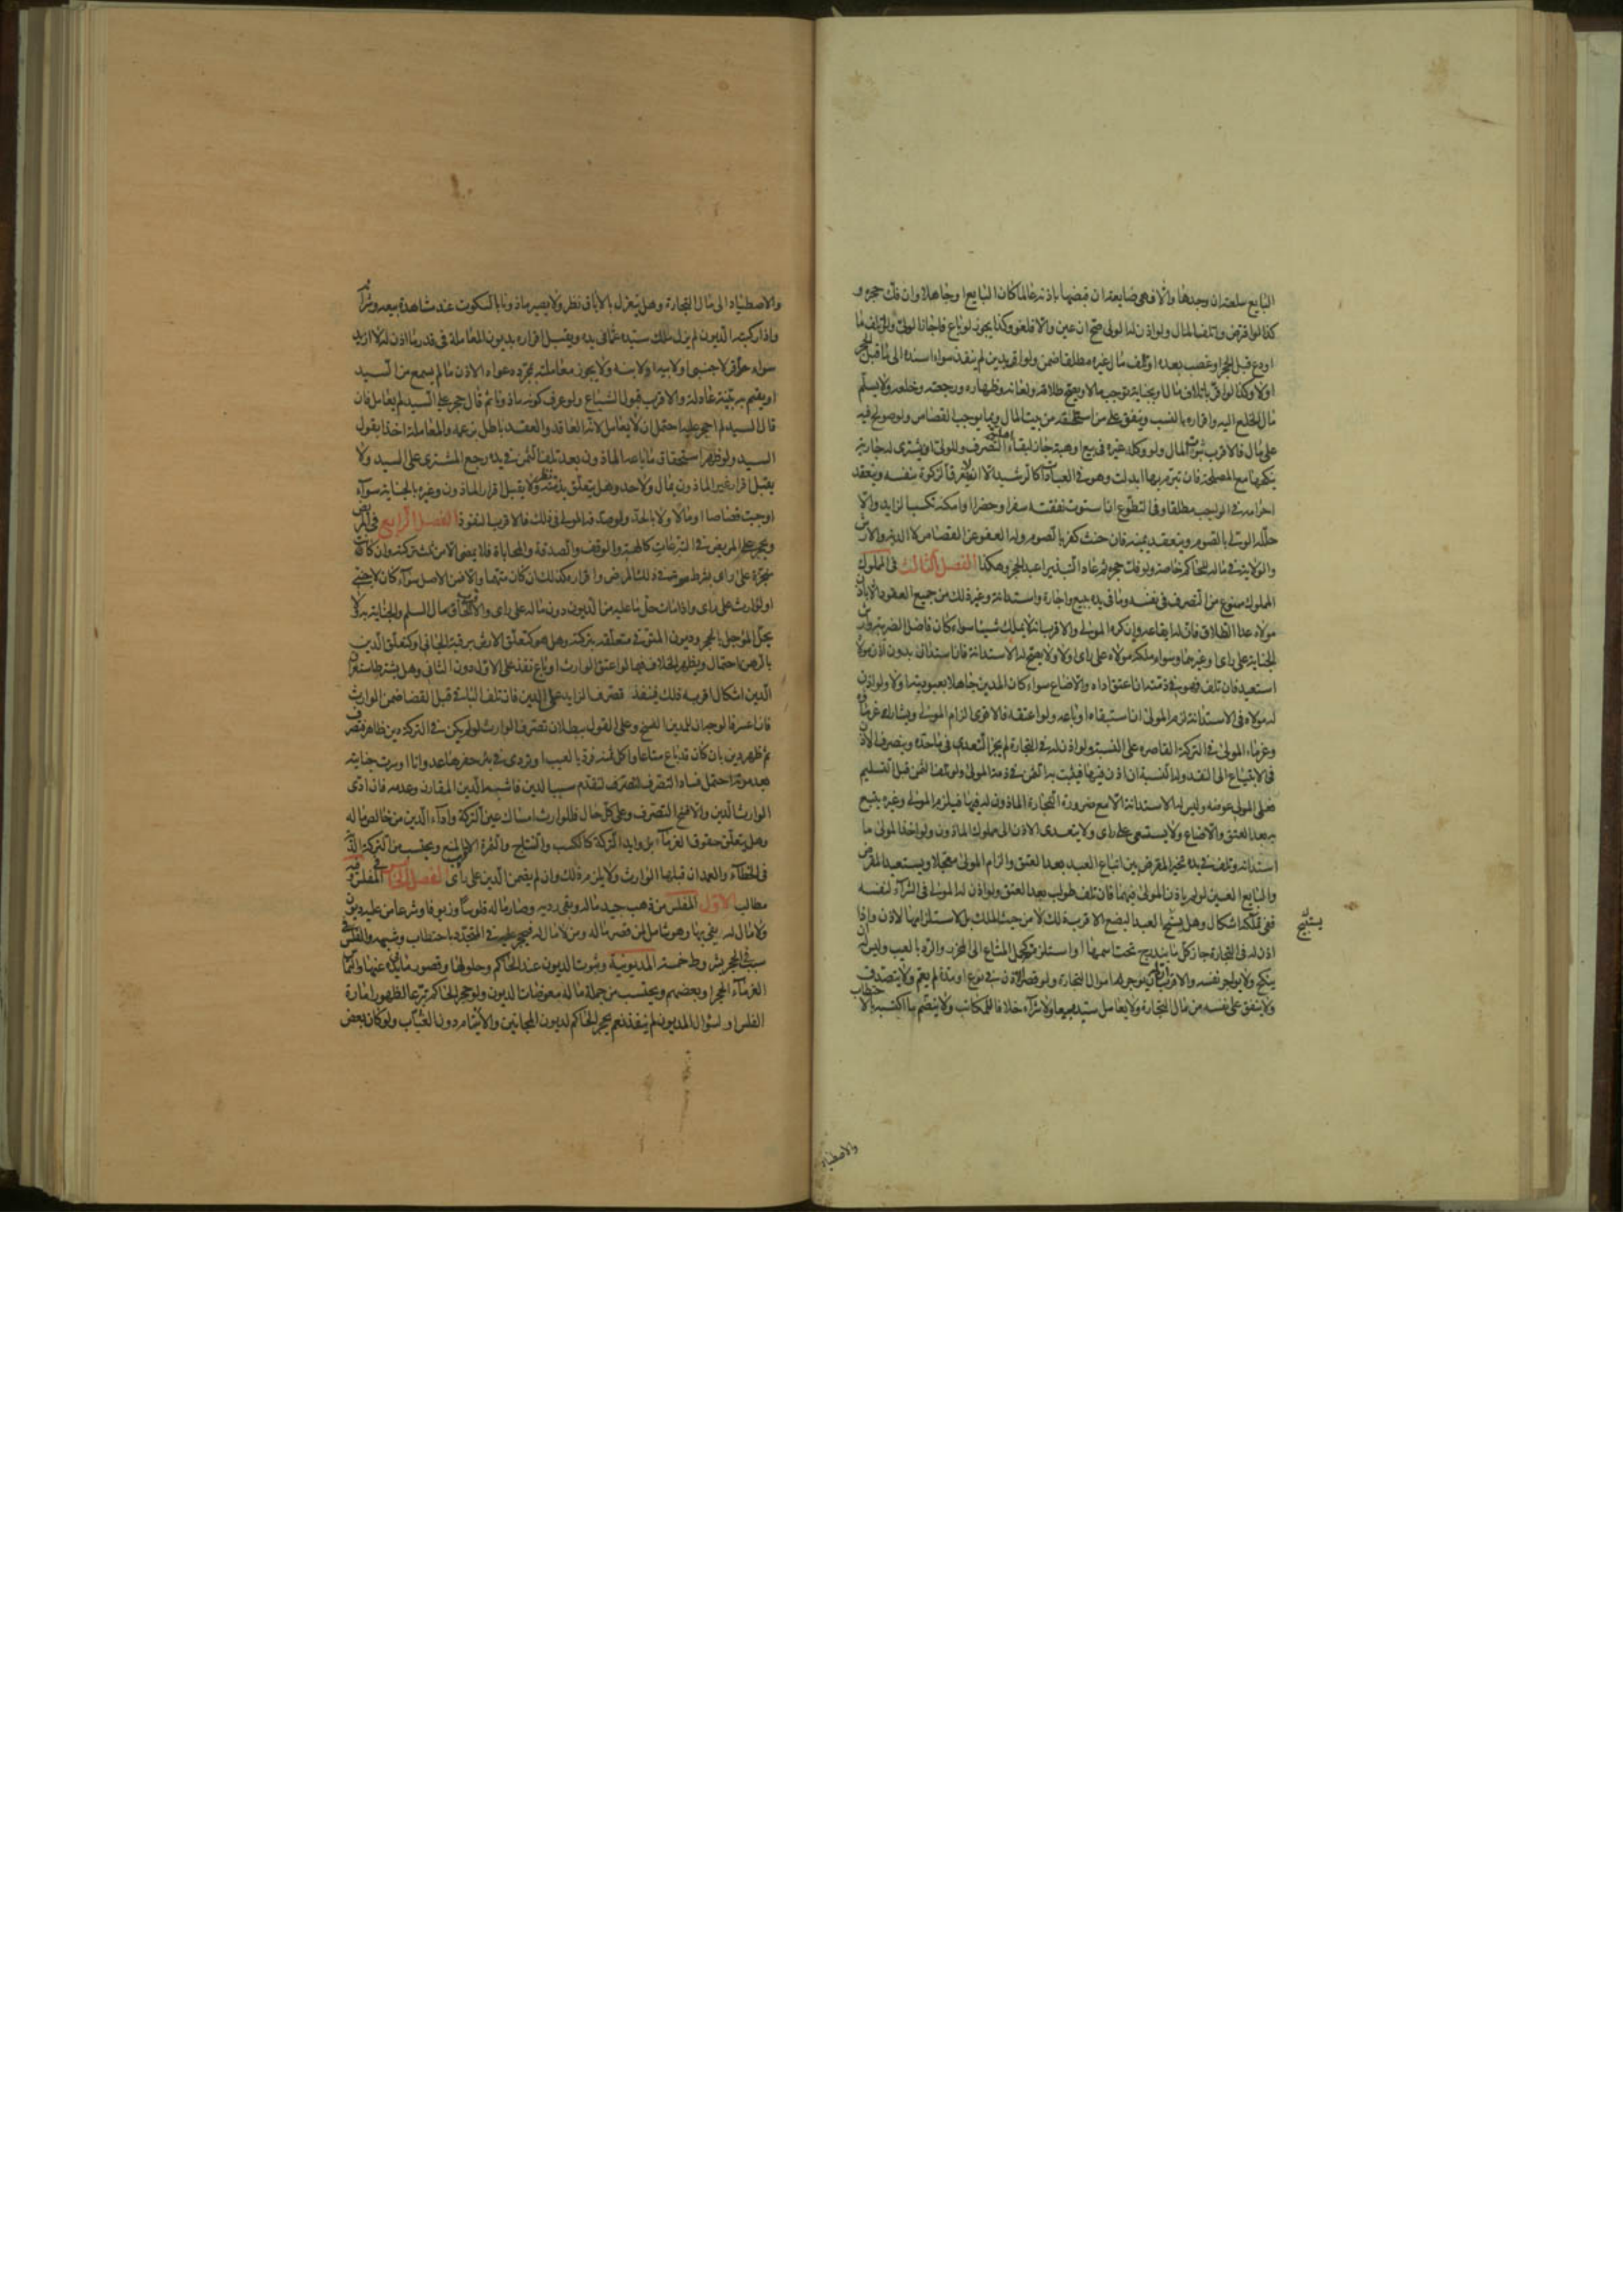 البايع سلعته ان وجدها والا فهي ضايعة ان قبضها باذنه عالما كان البايع او جاهلا وان فك حجره و
كذا لو اقترض واتلف المال ولو اذن له الولي صح ان عين والا فلغو وكذا يجوز لو باع فاجاز الولي ولو تلف ما
اودع قبل الحجر او غصب بعده او اتلف مال غيره مطلقا ضمن ولو اقر بدين لم ينفذ سواء اسنده الى ما قبل الحجر
اولا وكذا لو اقر باتلاف مال او بجناية توجب مالا ويصح طلاقه ولعانه وظهاره ورجعته وخلعه ولا يسلم
مال الخلع اليه واقراره بالنسب وينفق على من استلحقه من بيت المال وبما يوجب القصاص ولو صولح فيه
على مال فالاقرب ثبوت المال ولو وكله غيره في بيع او هبة جاز لبقاء اهلية التصرف وللولي ان يشتري له جارية
ينكحها مع المصلحة فان تبرم بها ابدلت وهو في العبادات كالرشيد الا انه لا يفرق الزكوة بنفسه وينعقد
احرامه في الواجب مطلقا وفي التطوع ان استوت نفقته سفرا وحضرا او امكنه تكسب الزايد والا
حلله الولي بالصوم وينعقد يمينه فان حنث كفر بالصوم وله العفو عن القصاص لا الدية والارش
والولاية في ماله للحاكم خاصة ولو فك حجره ثم عاد التبذير اعيد الحجر وهكذا الفصل الثالث في المملوك
المملوك ممنوع من التصرف في نفسه وما في يده ببيع واجارة واستدانة وغير ذلك من جميع العقود الا باذن
مولاه عدا الطلاق فان له ايقاعه وان كره المولى والاقرب انه لا يملك شيئا سواء كان فاضل الضريبة وارش
الجناية على راي او غيرهما وسواء ملكه مولاه على راي اولا ولا يصح له الاستدانة فان استدان بدون اذن مولاه
استعيد فان تلف فهو في ذمته ان اعتق اداه والا ضاع سواء كان المدين جاهلا بعبوديته اولا ولو اذن
له مولاه في الاستدانة لزم المولى ان استبقاه او باعه ولو اعتقه فالاقوى الزام المولى ويشارك غرماؤه
وغرماء المولى في التركة القاصرة على النسبة ولو اذن له في التجارة لم يجز التعدي فيما حده وينصرف الاذن
في الابتياع الى النقد وله النسية ان اذن فيها فيثبت به الثمن في ذمة المولى ولو تلف الثمن قبل التسليم
فعلى المولى عوضه وليس له الاستدانة الا مع ضرورة التجارة الماذون له فيها فيلزم المولى وغيره يتبع
به بعد العتق والا ضاع ولا يستسعى على راي ولا يتعدى الاذن الى مملوك الماذون ولو اخذ المولى ما
استدانه وتلف في يده تخير المقرض بين اتباع العبد بعد العتق والزام المولى معجلا ويستعيد المقرض
والبايع العين لو لم ياذن المولى فيهما فان تلف طولب بعد العتق ولو اذن له المولى في الشراء لنفسه
ففي تملكه اشكال وهل يستبيح العبد البضع الاقرب ذلك لا من حيث الملك بل لاستلزامها الاذن واذا
اذن له في التجارة جاز كل ما يندرج تحت اسمها او استلزمته كحمل المتاع الى المحرز والرد بالعيب وليس له ان
ينكح ولا يواجر نفسه والاقرب ان له ان يوجر اموال التجارة ولو قصر الاذن في نوع او مدة لم يعم ولا يتصدق
ولا ينفق على نفسه من مال التجارة ولا يعامل سيده بيعا ولا شراء خلافا للمكاتب ولا ينضم ما اكتسبه بالاحتطاب
يستبيح
والاصطياد
والاصطياد الى مال التجارة وهل ينعزل بالاباق نظر ولا يصير ماذونا بالسكوت عند مشاهدة بيعه وشرائه
واذا ركبته الديون لم يزل ملك سيده عما في يده ويقبل اقراره بديون المعاملة في قدر ما اذن له لا ازيد
سواء اقر لاجنبي او لابيه او لابنه ولا يجوز معاملته بمجرد دعواه الاذن ما لم يسمع من السيد
او يقيم به بينة عادلة والاقرب قبول الشياع ولو عرف كونه ماذونا ثم قال حجر علي السيد لم يعامل فان
قال السيد لم احجر عليه احتمل ان لا يعامل لانه العاقد والعقد باطل بزعمه والمعاملة اخذا بقول
السيد ولو ظهر استحقاق ما باعه الماذون بعد تلف الثمن في يده رجع المشتري على السيد ولا
يقبل اقرار غير الماذون بمال ولا حد وهل يتعلق بذمته نظر ولا يقبل اقرار الماذون وغيره بالجناية سواء
اوجبت قصاصا او مالا ولا بالحد ولو صدقه المولى في ذلك فالاقرب النفوذ الفصل الرابع في المريض
ويحجر على المريض في التبرعات كالهبة والوقف والصدقة والمحاباة فلا يمضي الا من ثلث تركته وان كانت
منجزة على راي بشرط موته في ذلك المرض واقراره كذلك ان كان متهما والا فمن الاصل سواء كان لاجنبي
او لوارث على راي واذا مات حل ما عليه من الديون دون ماله على راي والاقرب الحاق مال السلم والجناية به لا
يحل المؤجل بالحجر وديون المتوفى متعلقة بتركته وهل هو كتعلق الارش برقبة الجاني او كتعلق الدين
بالرهن احتمال ويظهر الخلاف فيما لو اعتق الوارث او باع نفذ على الاول دون الثاني وهل يشترط استغراق
الدين اشكال اقربه ذلك فينفذ تصرف الزايد على الدين فان تلف الباقي قبل القضا ضمن الوارث
فان اعسر فالوجه ان للمدين الفسخ وعلى القول ببطلان تصرف الوارث لو لم يكن في التركة دين ظاهر فتصرف
ثم ظهر دين بان كان قد باع متاعا واكل ثمنه فرد بالعيب او تردى في بئر حفرها عدوانا او سرت جنايته
بعد موته احتمل فساد التصرف لتقدم سبب الدين فاشبه الدين المقارن وعدمه فان ادى
الوارث الدين والا فسخ التصرف وعلى كل حال فللوارث امساك عين التركة واداء الدين من خالص ماله
وهل يتعلق حقوق الغرماء بزوايد التركة كالكسب والنتاج والثمرة الاقرب المنع ويحتسب من التركة الدية
في الخطاء والعمد ان قبلها الوارث ولا يلزمه ذلك وان لم يضمن الدين على راي الفصل الخامس في المفلس وفيه
مطالب الاول المفلس من ذهب جيد ماله وبقي رديه وصار ماله فلوسا وزيوفا وشرعا من عليه ديون
ولا مال له يفي بها وهو شامل لمن قصر ماله ومن لا مال له فيحجر عليه في المتجدد باحتطاب وشبهه والفلس
سبب في الحجر بشروط خمسة المديونية وثبوت الديون عند الحاكم وحلولها وقصور ما في يده عنها والتماس
الغرماء الحجر او بعضهم ويحتسب من جملة ماله معوضات الديون ولو حجر الحاكم تبرعا لظهور امارة
الفلس او لسؤال المديون لم ينفذ نعم يحجر الحاكم لديون المجانين والايتام دون الغياب ولو كان بعض